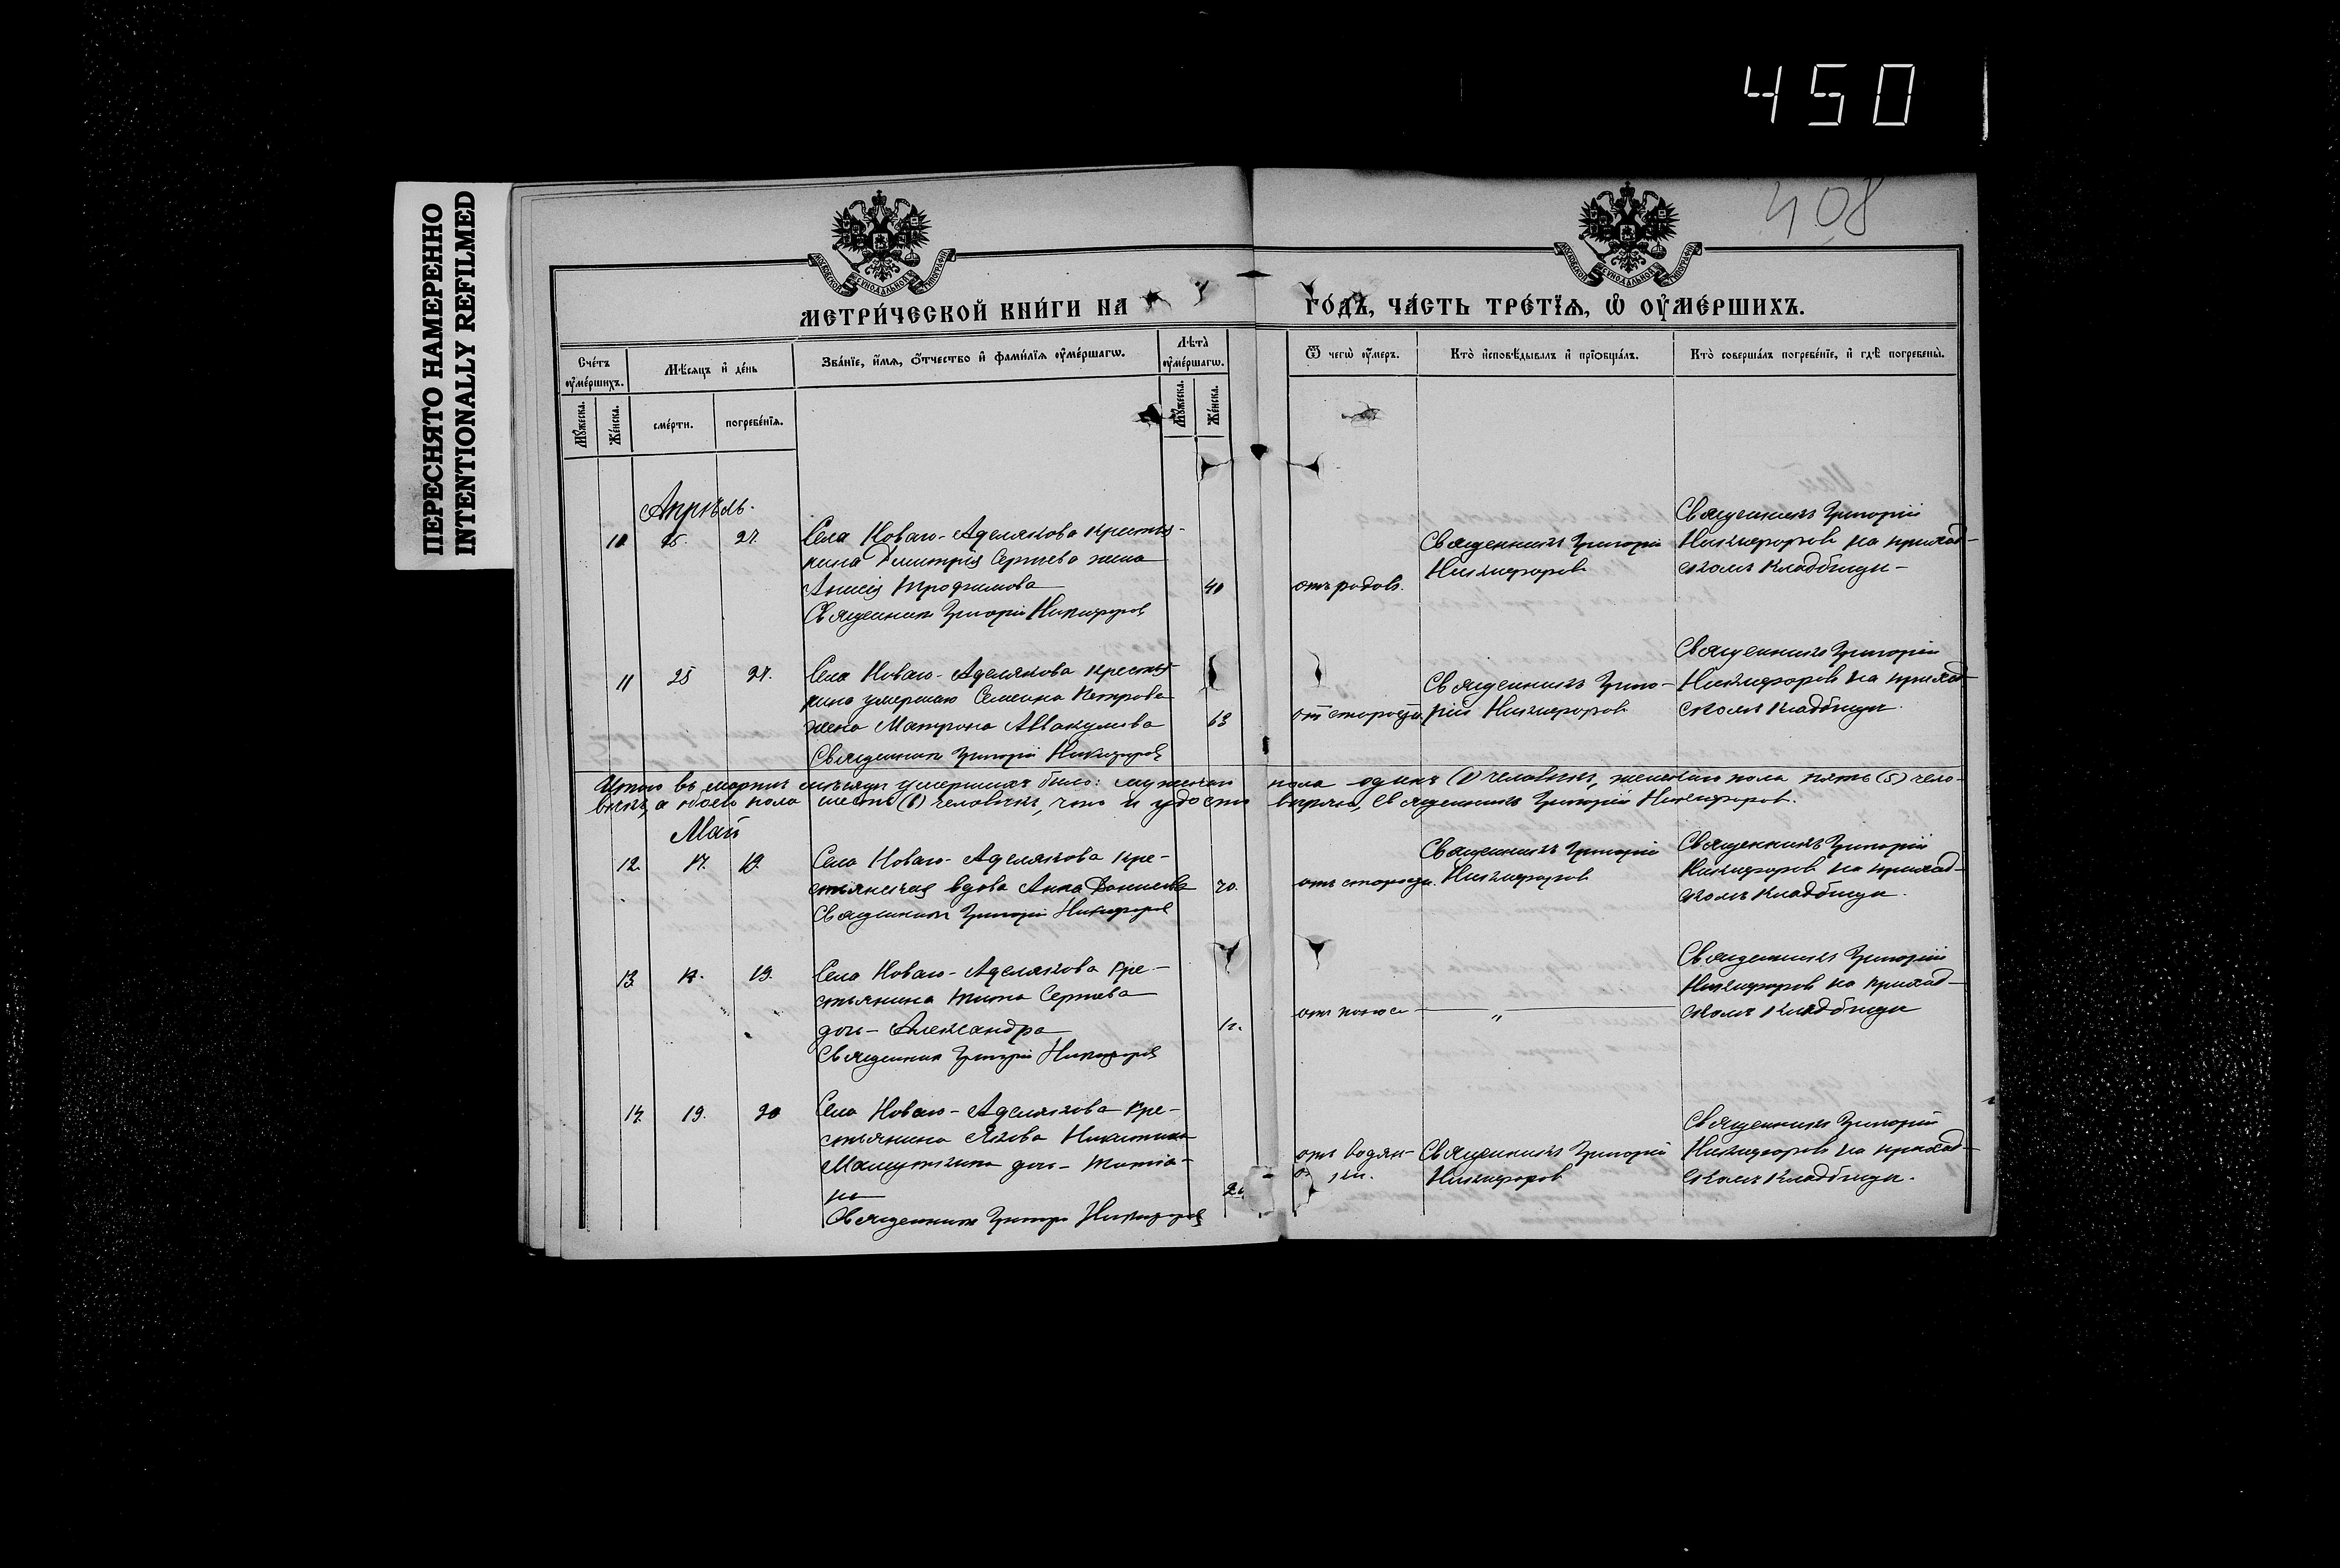 450
ПЕРЕСНЯТО НАМЕРЕННО
INTENTIONALLY REFILMED
408
МОСКОВСКОЙ СѴНОДАЛЬНОЙ ТИПОГРАФІИ
МОСКОВСКОЙ СѴНОДАЛЬНОЙ ТИПОГРАФІИ
МЕТРИ́ЧЕСКОЙ КНИ́ГИ НА ГО́ДЪ, ЧА́СТЬ ТРЕ́ТЇѦ, Ѡ҆ ОУ҆МЕ́РШИХЪ.
Сче́тъ оу҆ме́ршихъ.
Мѣ́сяцъ и҆ де́нь
Зва́нїе, и҆́мѧ, ѻ҆́тчество и҆ фами́лїѧ оу҆ме́ршагѡ.
Лѣ́та̀ оу҆ме́ршагѡ.
Ѿ чегѡ̀ оу҆́меръ.
Кто̀ и҆сповѣ́дывалъ и҆ прїѡбща́лъ.
Кто̀ соверша́лъ погребе́нїе, и҆ гдѣ̀ погребены̀.
Мꙋ́жеска.
Же́нска.
сме́рти.
погребе́нїѧ.
Мꙋ́жеска.
Же́нска.
Апрѣль.
10 25. 27. Села Новаго-Аделякова крестья-
нина Димитрія Сергѣева жена
Анисія Трофимова 40
Священникъ Григорій Никифоровъ
отъ родовъ.
Священникъ Григорій
Никифоровъ
Священникъ Григорій
Никифоровъ на приход-
скомъ кладбищѣ
11 25 27. Села Новаго-Аделякова крестья-
нина умершаго Семеона Петрова
жена Матрона Аввакумова 63
Священникъ Григорій Никифоровъ
отъ старости.
Священникъ Григо-
рій Никифоровъ
Священникъ Григорій
Никифоровъ на приход-
скомъ кладбищѣ.
Итого въ мартѣ мѣсяцѣ умершихъ было: мужескаго пола одинъ (1) человѣкъ, женскаго пола пять (5) чело-
вѣкъ, а обоего пола шесть (6) человѣкъ, что и удосто вѣряю, Священникъ Григорій Никифоровъ.
Май
12. 17. 19. Села Новаго-Аделякова кре-
стьянская вдова Анна Данилова 70.
Священникъ Григорій Никифоровъ
отъ старости.
Священникъ Григорій
Никифоровъ
Священникъ Григорій
Никифоровъ на приход-
скомъ кладбищѣ.
13. 19. Села Новаго-Аделякова кре-
стьянина Тита Сергѣева
дочь-Александра 1г.
Священникъ Григорій Никифоровъ
отъ поноса
„
Священникъ Григорій
Никифоровъ на приход-
скомъ кладбищѣ
14. 19. 20 Села Новаго-Аделякова кре-
стьянина Якова Никитина
дочь-Татіа-
на
Священникъ Григорій Никифоровъ
отъ водян-
Священникъ Григорій
Никифоровъ
Священникъ Григорій
Никифоровъ на приход-
скомъ кладбищѣ.